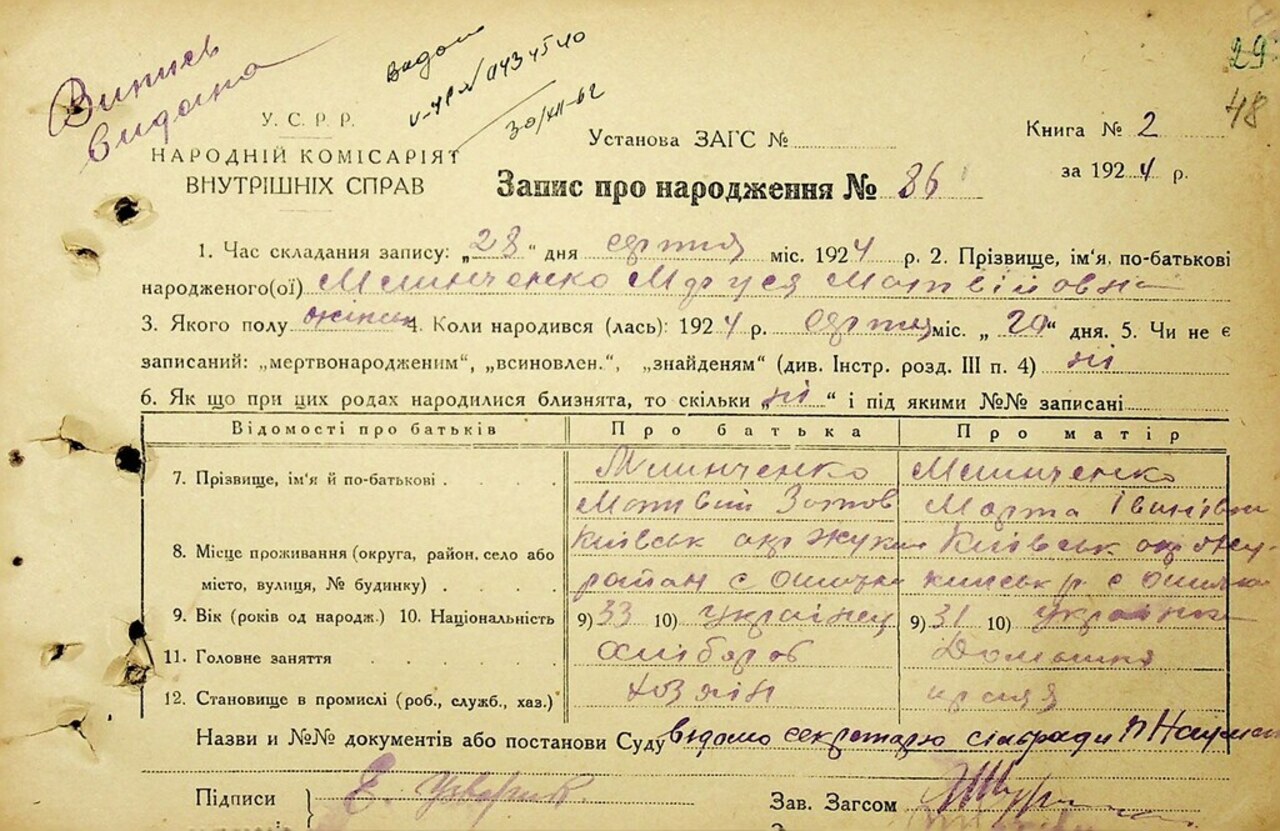 29
48
Випись
видана
видан
30/XII-62
У. С. Р. Р.
НАРОДНІЙ КОМІСАРІЯТ
ВНУТРІШНІХ СПРАВ
Установа ЗАГС №
Книга № 2
за 1924 р.
Запис про народження № 86
1. Час складання запису: „28“ дня серпня міс. 1924 р. 2. Прізвище, ім'я, по-батькові
народженого(ої) Маруся Матвійовна
3. Якого полу жіноч 4. Коли народився (лась): 1924 р. серпня міс. „20“ дня. 5. Чи не є
записаний: „мертвонародженим“, „всиновлен.“, „знайденям“ (див. Інстр. розд. III п. 4) ні
6. Як що при цих родах народилися близнята, то скільки „ні“ і під якими №№ записані
Відомості про батьків Про батька Про матір
7. Прізвище, ім'я й по-батькові
Матвій Марта Іванівна
8. Місце проживання (округа, район, село або Київськ окр Київськ окр
місто, вулиця, № будинку) район с с
9. Вік (років од народж.) 10. Національність 9) 33 10) українец 9) 31 10) українка
11. Головне заняття Хлібороб Домашня
12. Становище в промислі (роб., служб., хаз.) хозяїн праця
Назви и №№ документів або постанови Суду відомо секретарю сільради
Підписи Зав. Загсом